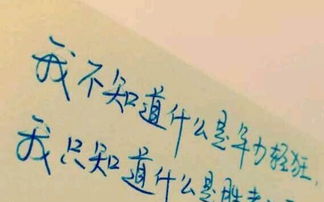 我不知道什么是年少轻狂，
我只知道什么是胜者